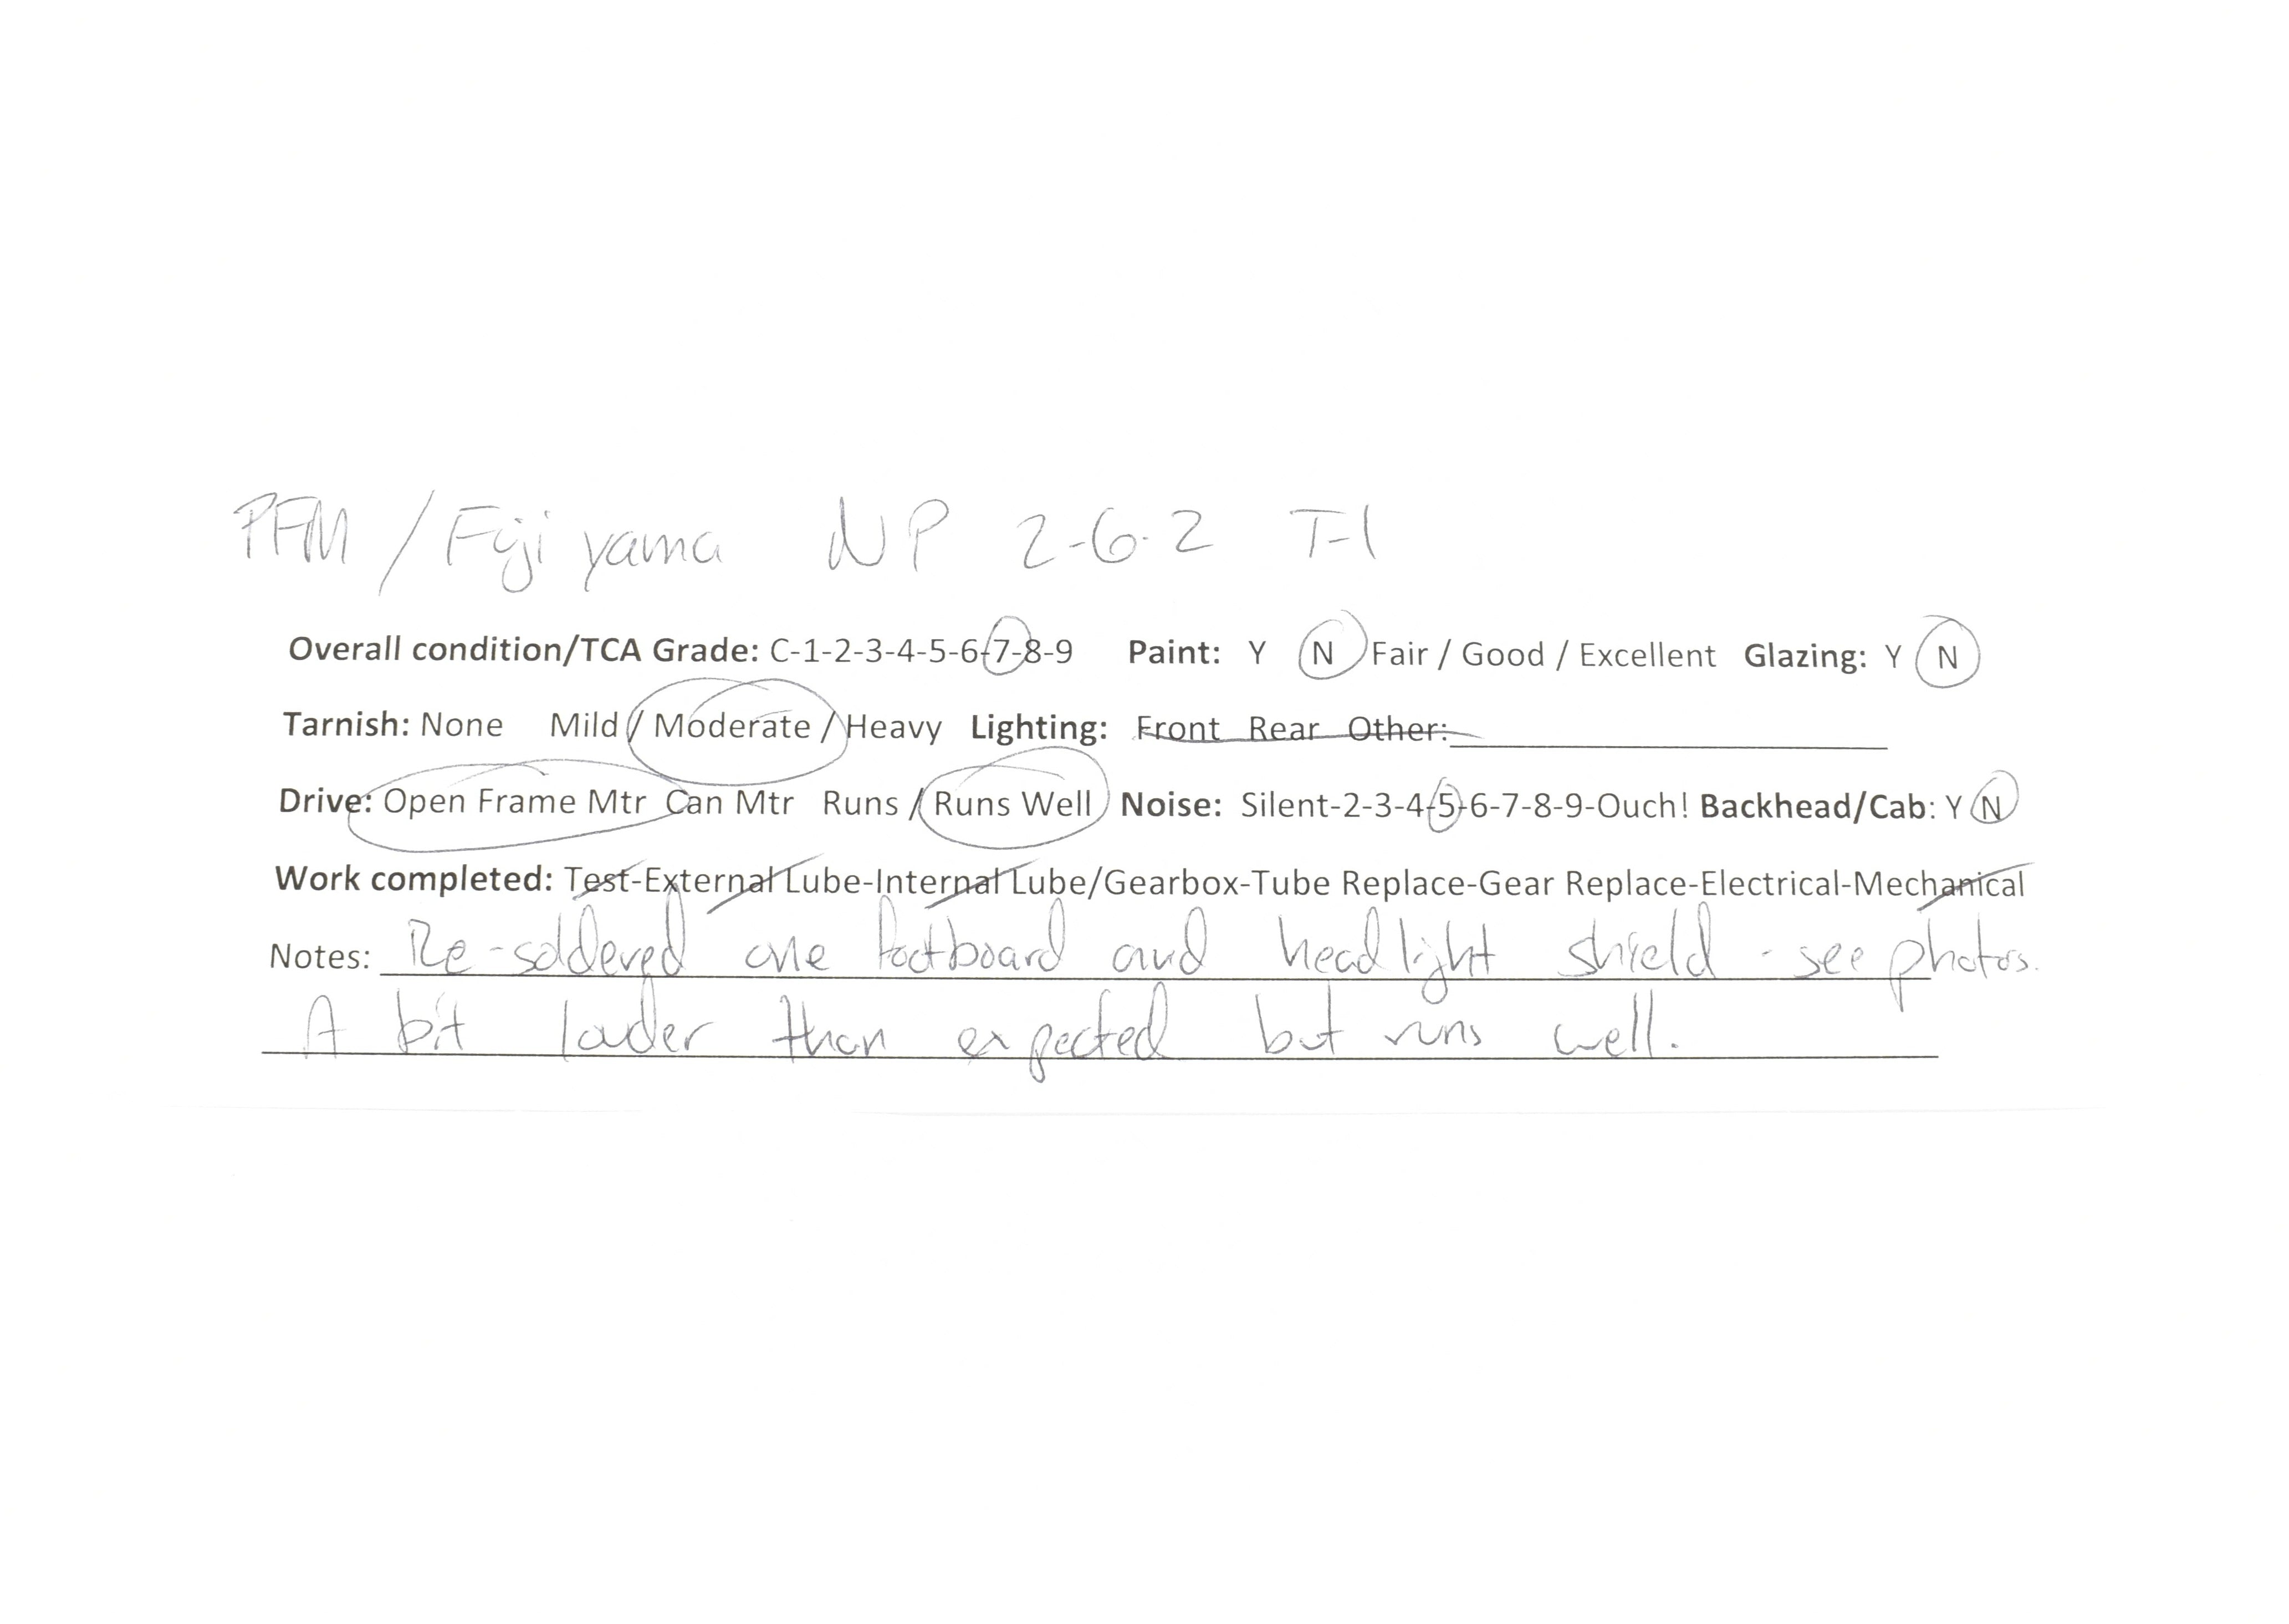 PFM / Fujiyama NP 2-6-2 T-1
Overall condition/TCA Grade: C-1-2-3-4-5-6-7-8-9 Paint: Y N Fair / Good / Excellent Glazing: Y N
Tarnish: None Mild / Moderate / Heavy Lighting: Front Rear Other:
Drive: Open Frame Mtr Can Mtr Runs / Runs Well Noise: Silent-2-3-4-5-6-7-8-9-Ouch! Backhead/Cab: Y N
Work completed: Test-External Lube-Internal Lube/Gearbox-Tube Replace-Gear Replace-Electrical-Mechanical
Notes: Re-soldered one footboard and headlight shield - see photos.
A bit louder than expected but runs well.